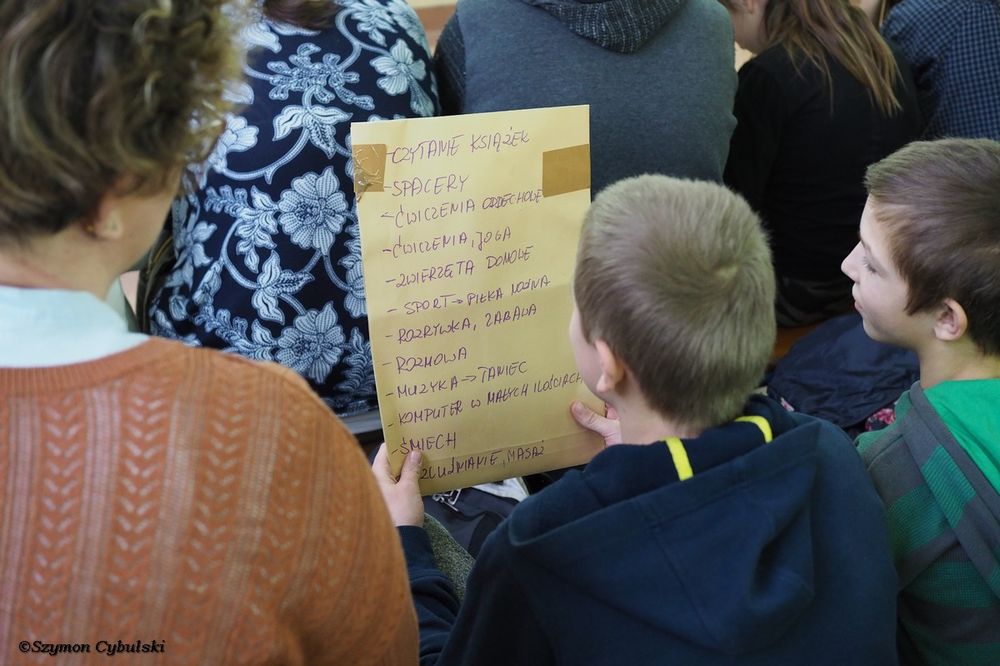 - CZYTANIE KSIĄŻEK
- SPACERY
- ĆWICZENIA ODDECHOWE
- ĆWICZENIA, JOGA
- ZWIERZĘTA DOMOWE
- SPORT → PIŁKA NOŻNA
- ROZRYWKA, ZABAWA
- ROZMOWA
- MUZYKA → TANIEC
- KOMPUTER W MAŁYCH ILOŚCIACH
- ŚMIECH
ZLUŹNIANIE, MASAŻ
©Szymon Cybulski